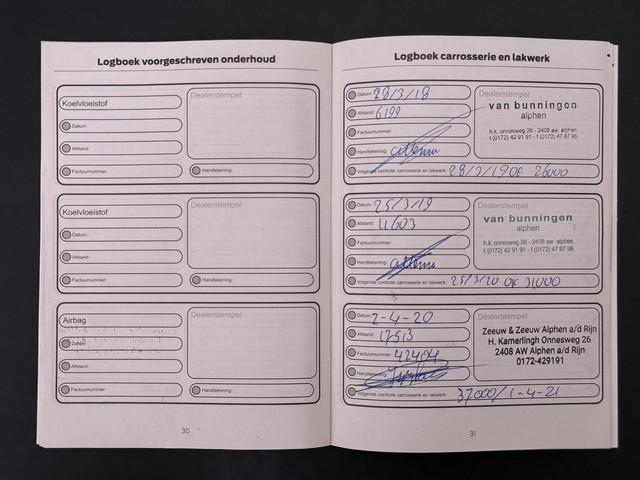 Logboek voorgeschreven onderhoud
Koelvloeistof
Dealerstempel
Datum:
Afstand:
Factuurnummer:
Handtekening:
Koelvloeistof
Dealerstempel
Datum:
Afstand:
Factuurnummer:
Handtekening:
Airbag
Dealerstempel
Datum:
Afstand:
Factuurnummer:
Handtekening:
30
Logboek carrosserie en lakwerk
Datum: 28/3/18
Afstand: 6199
Factuurnummer:
Handtekening:
Dealerstempel
van bunningen
alphen
h.k. onnesweg 26 - 2408 aw alphen
t (0172) 42 91 91 - f (0172) 47 67 98
Volgende controle carrosserie en lakwerk: 28/3/19 OF 26000
Datum: 25/3/19
Afstand: 11603
Factuurnummer:
Handtekening:
Dealerstempel
van bunningen
alphen
h.k. onnesweg 26 - 2408 aw alphen
t (0172) 42 91 91 - f (0172) 47 67 98
Volgende controle carrosserie en lakwerk: 25/3/20 OF 31000
Datum: 2-4-20
Afstand: 17513
Factuurnummer: 42404
Handtekening:
Dealerstempel
Zeeuw & Zeeuw Alphen a/d Rijn
H. Kamerlingh Onnesweg 26
2408 AW Alphen a/d Rijn
0172-429191
Volgende controle carrosserie en lakwerk: 37000/1-4-21
31